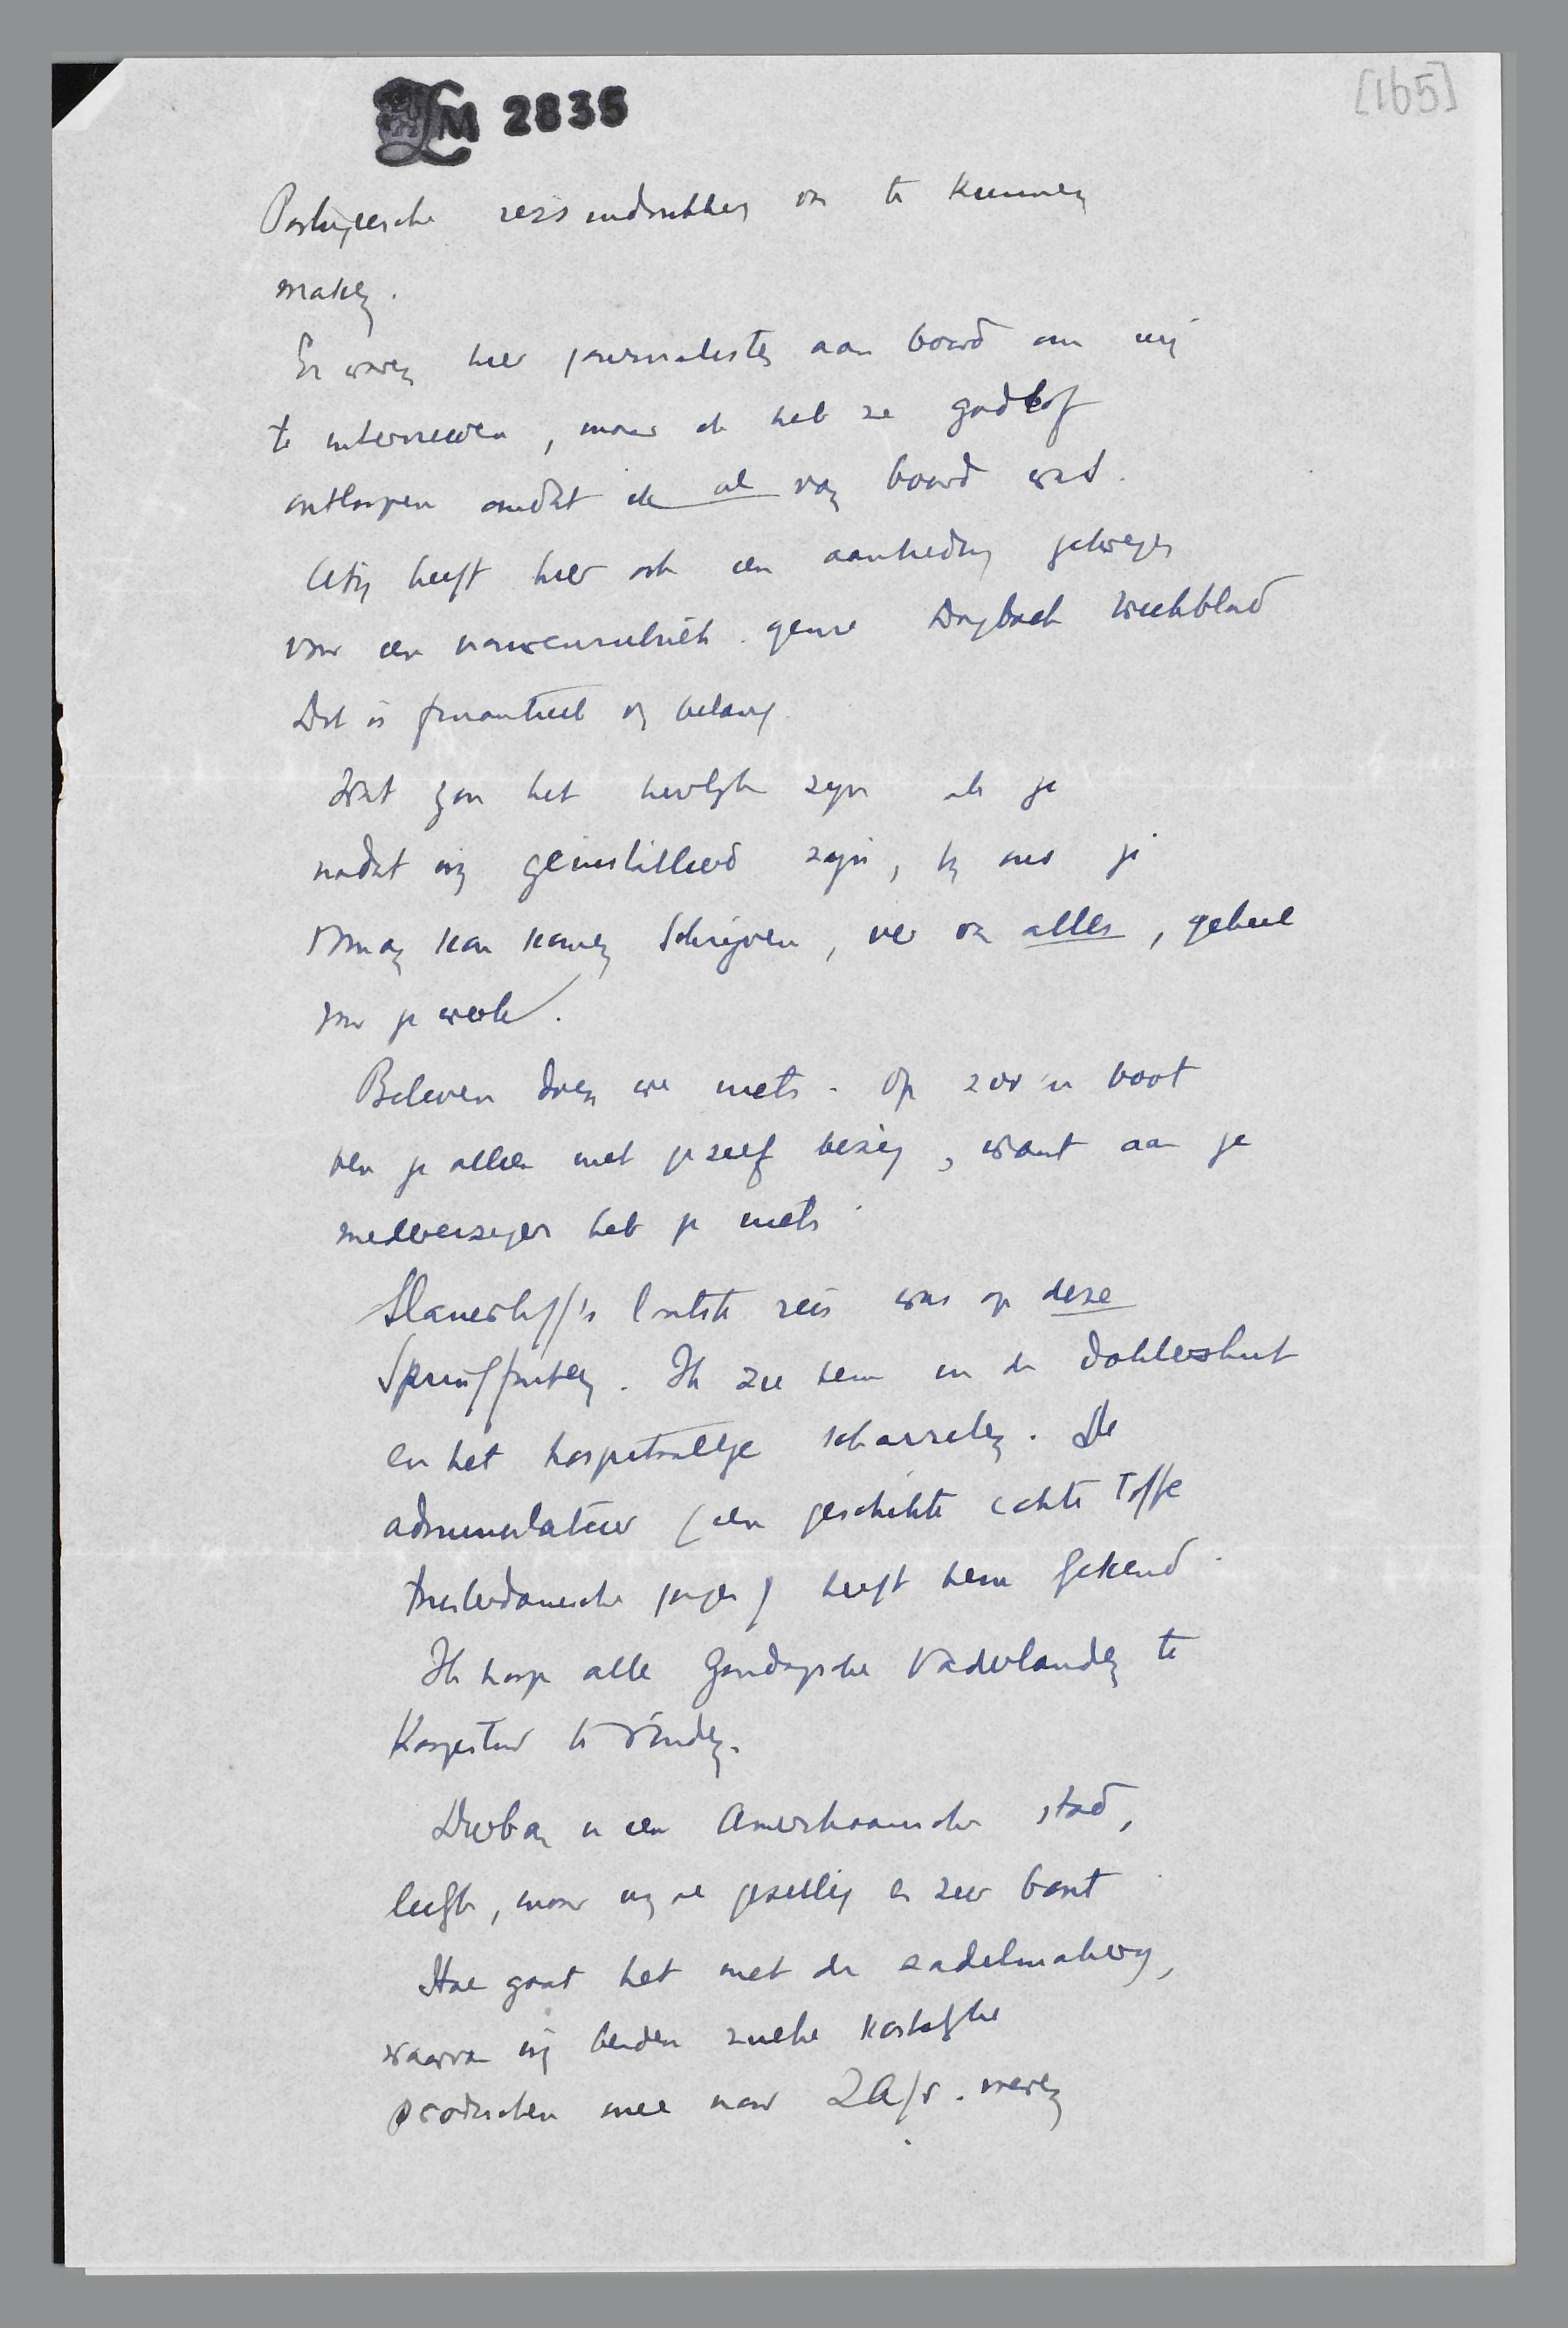 LM 2835
[165]
Portugeesche reisindrukken van te kunnen
maken.
Er waren hier journalisten aan boord om mij
te interviewen, maar ik heb ze godlof
ontloopen omdat ik al van boord was.
heeft hier ook een aanbieding gekregen
voor een vrouwenrubriek genre Dagboek Weekblad
Dat is financieel van belang
Wat zou het heerlijk zijn als je
nadat wij geinstalleerd zijn, bij ons je
roman kan komen schrijven, ver van alles, geheel
voor je werk.
Beleven doen we niets. Op zoo'n boot
ben je alleen met jezelf bezig, want aan je
medereizigers heb je niets.
Slauerhoff's laatste reis was op deze
Springfontein. Ik zie hem in de doktershut
en het hospitaaltje scharrelen. De
administrateur (een geschikte echte toffe
Amsterdamsche jongen) heeft hem gekend.
Ik hoop alle Zondagsche Vaderlanden te
Kaapstad te vinden.
Durban is een Amerikaansche stad,
leelijk, maar wij al gezellig en zeer bont
Hoe gaat het met de zadelmakerij,
waarvan wij beiden zulke kostelijke
producten mee naar Z.Afr. nemen